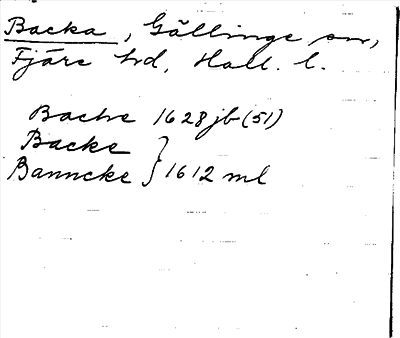 Backa, Gällinge sn,
Fjäre hd, Hall. l.
Backe 1628 jb (51)
Backe
Banncke } 1612 ml